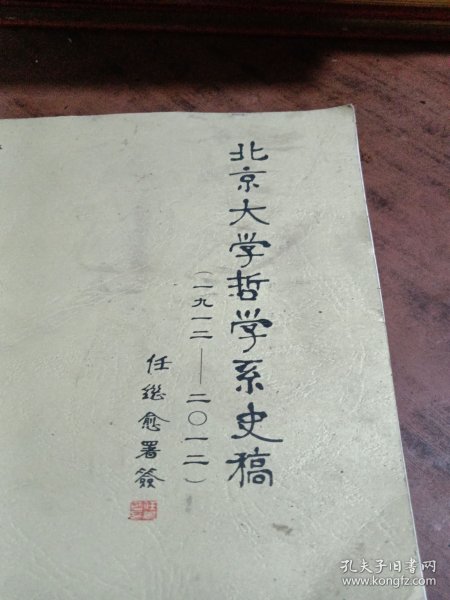 北京大学哲学系史稿
（一九一二——二〇一二）
任继愈署签
孔夫子旧书网
www.kongfz.com